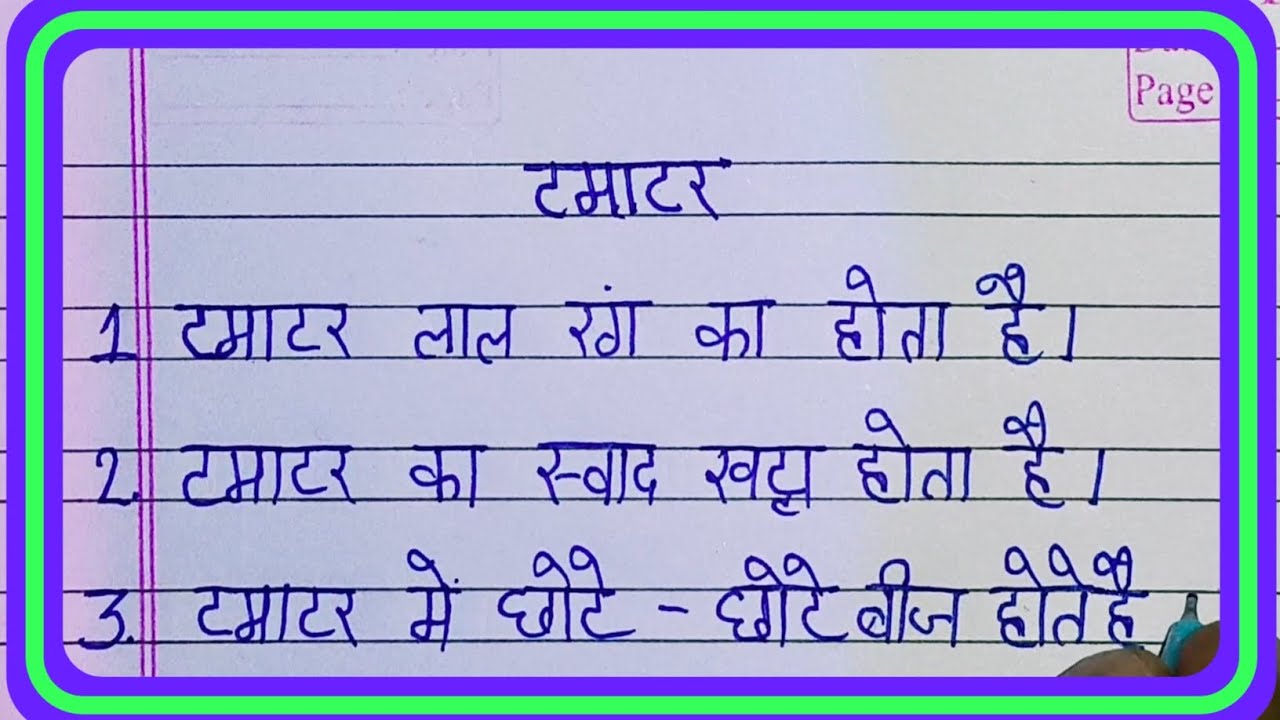 Page
टमाटर
1. टमाटर लाल रंग का होता है।
2. टमाटर का स्वाद खट्टा होता है।
3. टमाटर में छोटे - छोटे बीज होते है